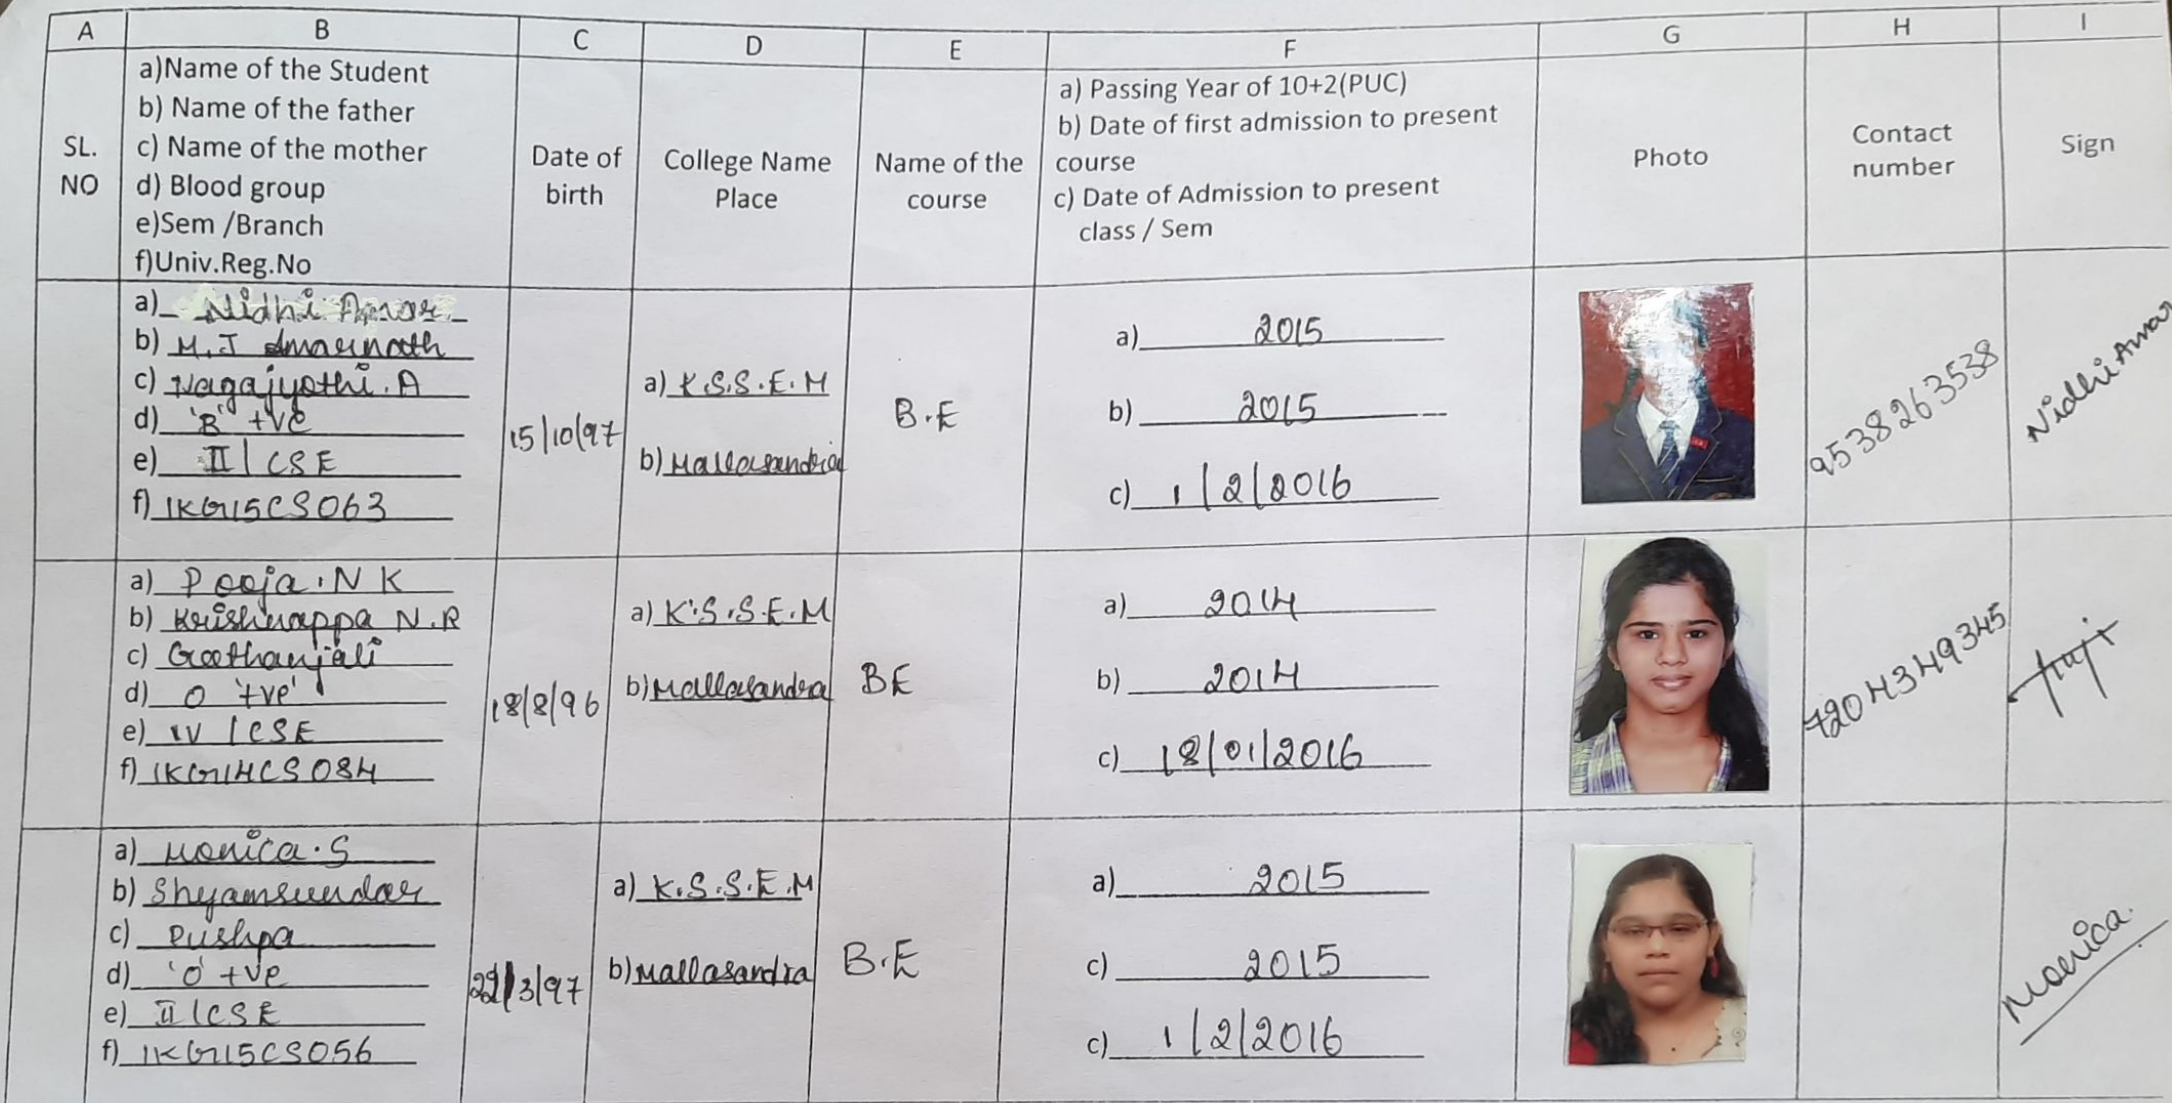 A B C D E F G H I
SL.
NO
a)Name of the Student
b) Name of the father
c) Name of the mother
d) Blood group
e)Sem /Branch
f)Univ.Reg.No
Date of
birth
College Name
Place
Name of the
course
a) Passing Year of 10+2(PUC)
b) Date of first admission to present
course
c) Date of Admission to present
class / Sem
Photo
Contact
number
Sign
a) Nidhi Amar
b) M.J Amarnath
c) Nagajyothi.A
d) 'B' +ve
e) II / CSE
f) 1KG15CS063
15/10/97
a) K.S.S.E.M
b) Mallasandra
B.E
a) 2015
b) 2015
c) 1/2/2016
9538263538
Nidhi Amar
a) Pooja.N K
b) Krishnappa N.R
c) Geethanjali
d) O '+ve'
e) IV / CSE
f) 1KG14CS084
18/8/96
a) K.S.S.E.M
b) Mallasandra
BE
a) 2014
b) 2014
c) 18/01/2016
7204349345
a) Monica.S
b) Shyamsundar
c) Pushpa
d) 'O' +ve
e) II / CSE
f) 1KG15CS056
/3/97
a) K.S.S.E.M
b) Mallasandra
B.E
a) 2015
c) 2015
c) 1/2/2016
Monica.